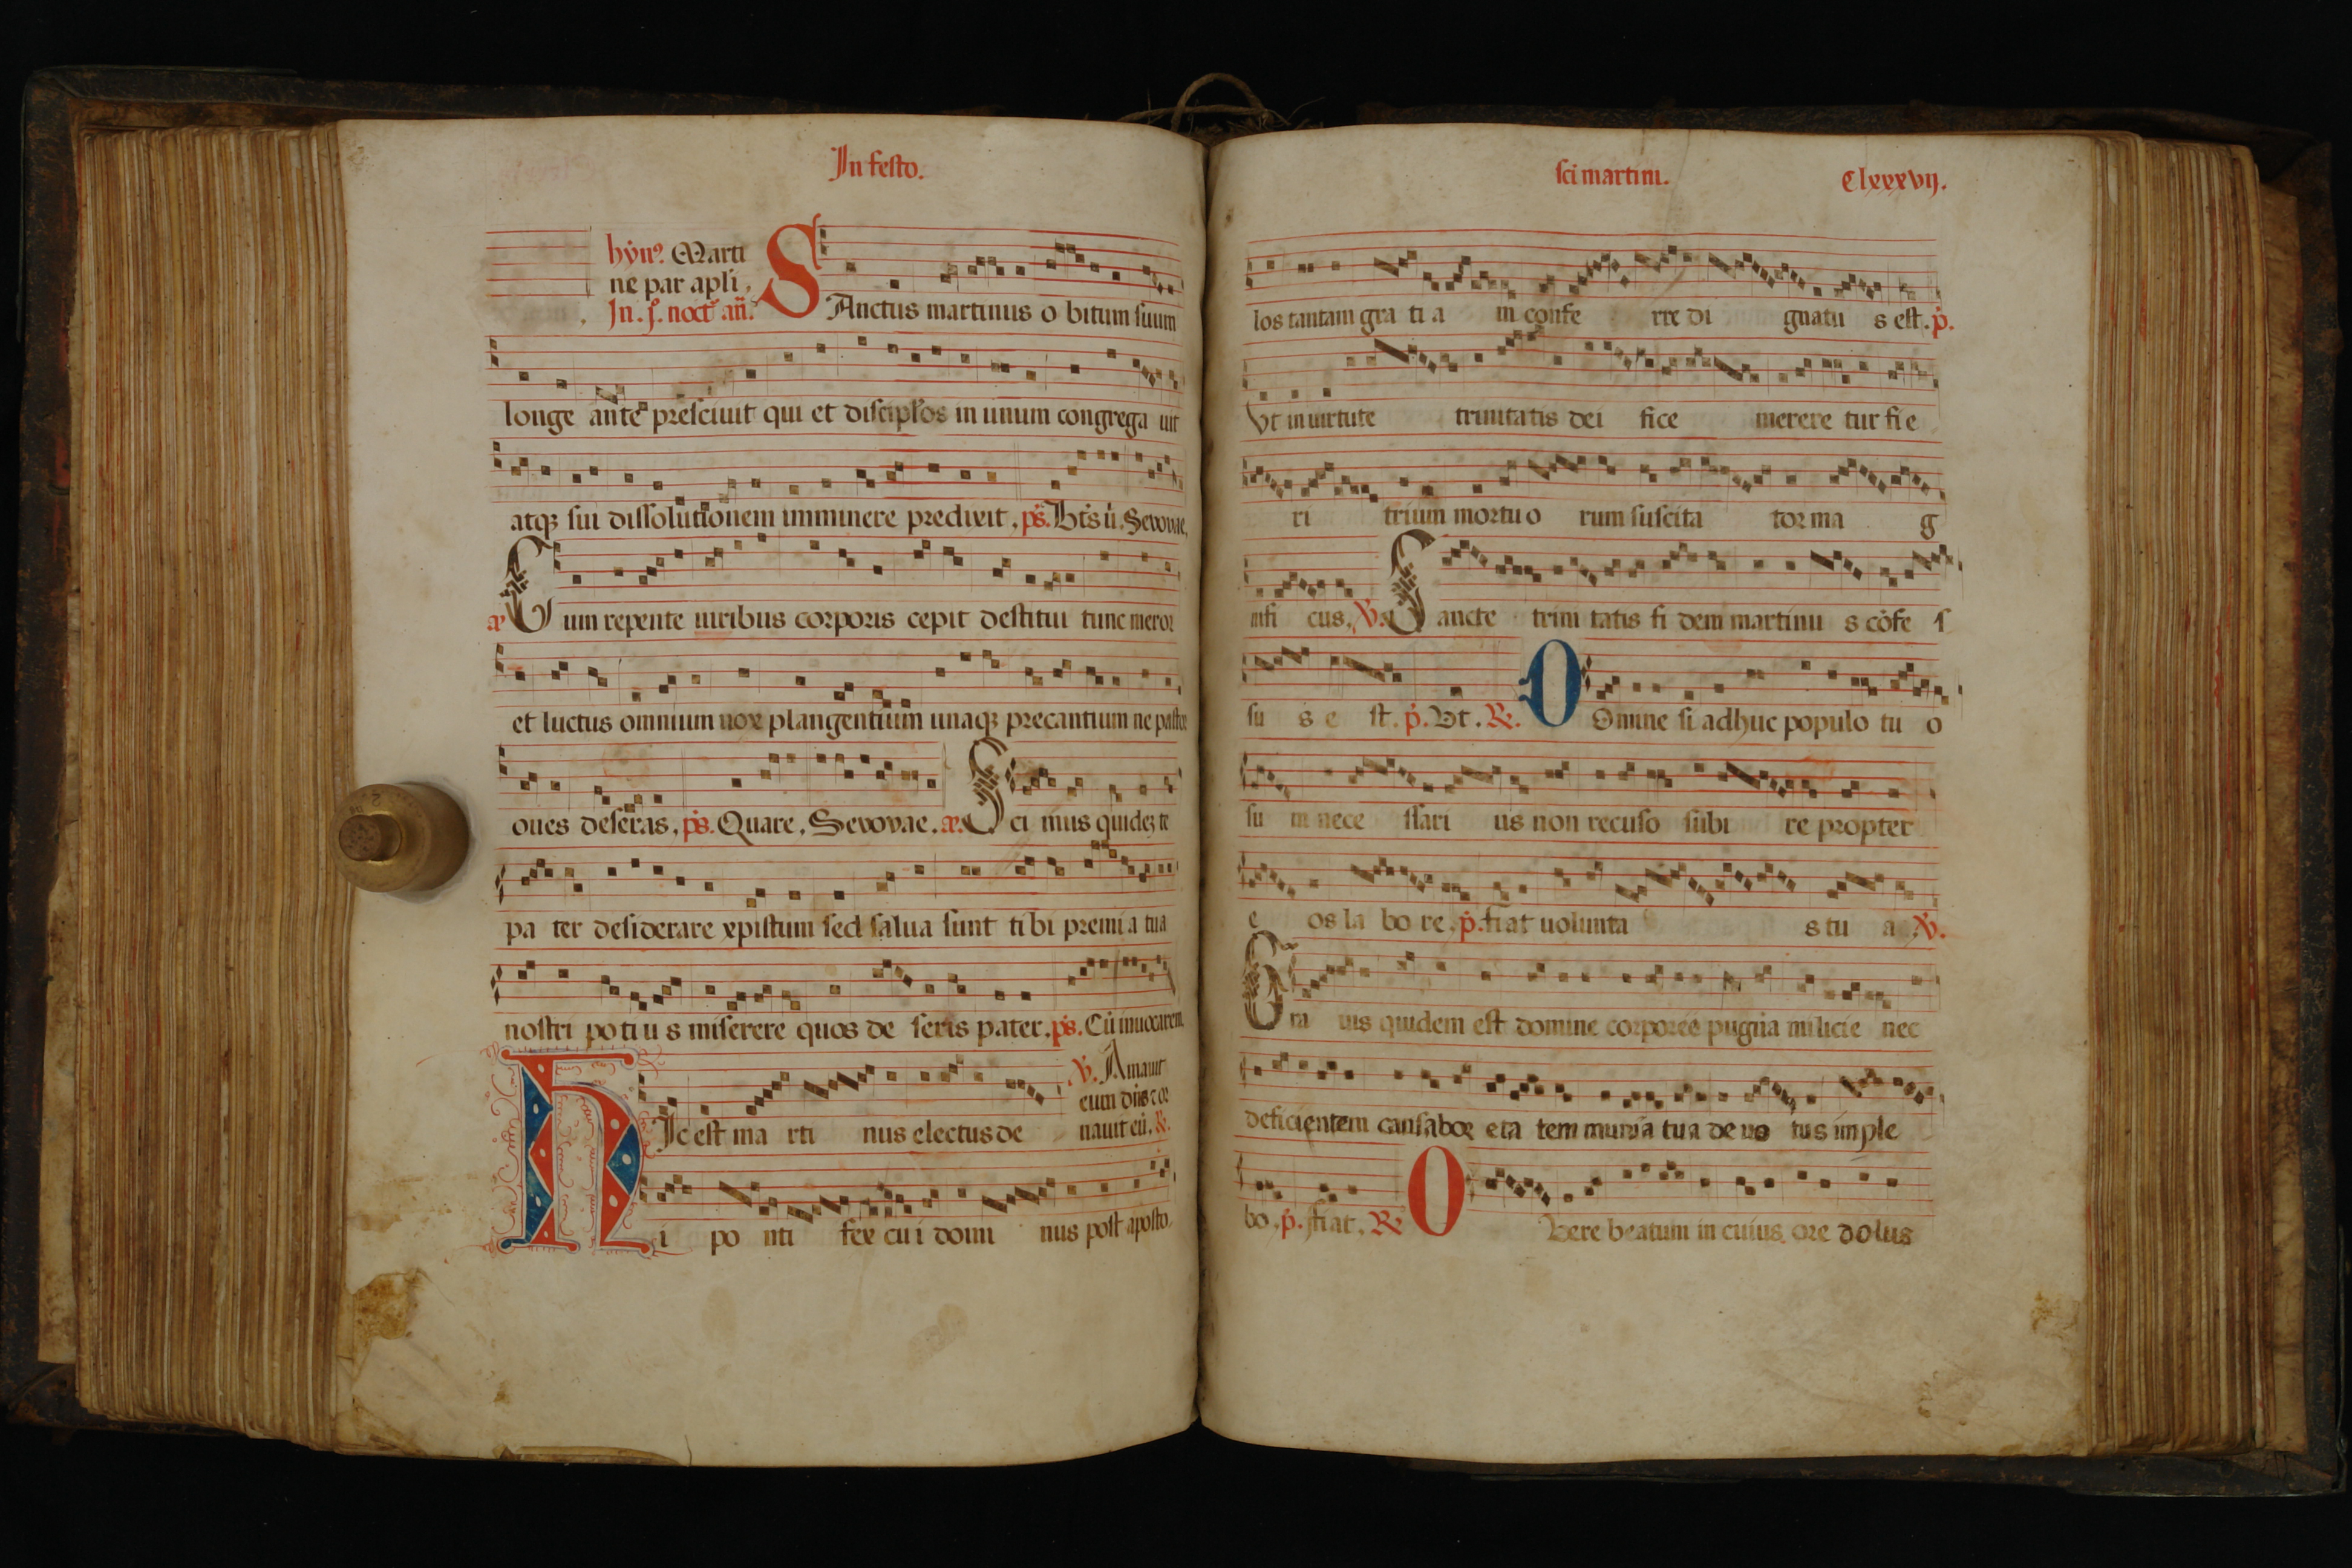 In festo.
hyn⁹. Marti
ne par apli.
In. j̊. noct̄ an̄.
SAnctus martinus o bitum suum
longe ante presciuit qui et discipl'os in unum congrega uit
atqꝫ sui dissolutionem imminere predixit. ps. Bt̄s ū. Seuouae.
Cum repente uiribus corporis cepit destitui tunc meror
et luctus omnium uox plangentium unaqꝫ precantium ne pastor
oues deseras. ps. Quare. Seuouae. æ. Sci mus quideꝫ te
pa ter desiderare xpistum sed salua sunt ti bi premi a tua
nostri po ti u s miserere quos de seris pater. ps. Cū inuocarem
℣. Amauit
eum dn̄s ⁊ or
HIc est ma rti nus electus de nauit eū. ℟.
i po nti fex cu i domi nus post aposto.
sci martini. Clxxxvij.
los tantam gra ti a m confe rre di gnatu s est. p̄.
Vt in uirtute trinitatis dei fice merere tur fi e
ri trium mortu o rum suscita tor ma g
nifi cus. ℣. Sancte trini tatis fi dem martinu s cōfe s
su s e st. p̄. Vt. ℟. DOmine si adhuc populo tu o
su m nece ssari us non recuso subi re propter
e os la bo re. p̄. fiat uolunta s tu a ℣.
Gra uis quidem est domine corporee pugna milicie nec
deficientem causabor eta tem munia tua de uo tus imple
bo. p̄. fiat. ℟ O Vere beatum in cuius ore dolus